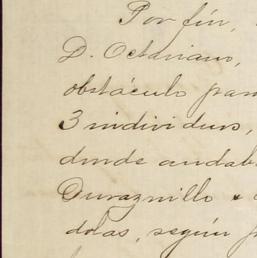 Por fin,
D. Octaviano,
obstáculo para
3 individuos,
donde andaba
Duraznillo e
dolas, según